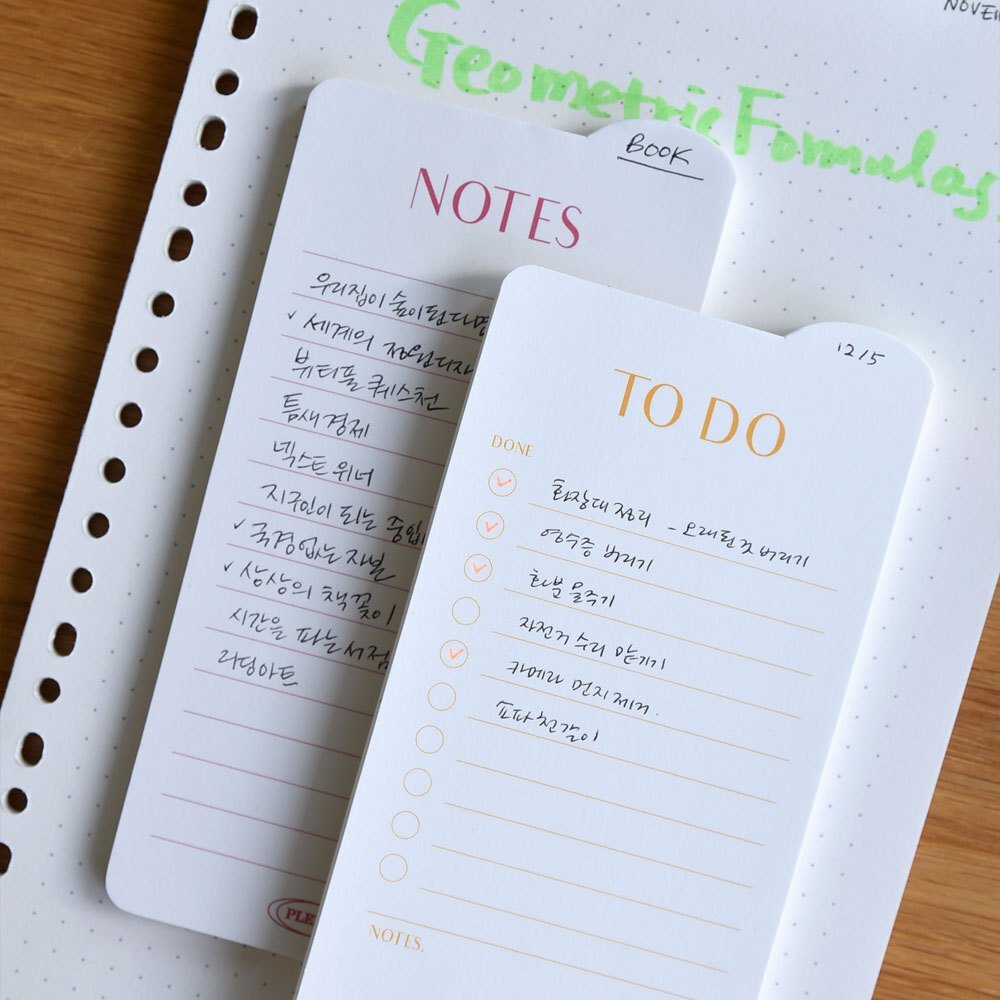 NOVE
Geometric Formulas
BOOK
NOTES
우리집이 숲이 된다면
✓ 세계의 정원 디자
뷰티풀 퀘스천
틈새경제
넥스트 위너
지구인이 되는 중입
✓ 국경없는 자본
✓ 상상의 책꽂이
시간을 파는 서점
리딩아트
PLE
12/5
TO DO
DONE
화장대 정리 - 오래된 것 버리기
영수증 버리기
화분 물주기
자전거 수리 맡기기
카메라 먼지 제거.
소파 천갈이
NOTES.